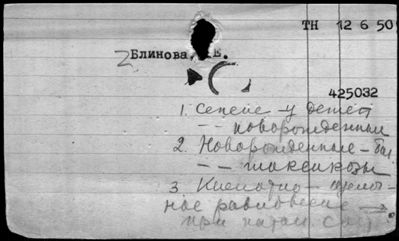 ТН 12 6 50
Блинова, Е.
425032
1. Сепсис – у детей
–"– новорожденных
2. Новорожденные – бол.
–"– токсикозы
3. Кислотно – щелоч-
ное равновесие →
при патол. сост.